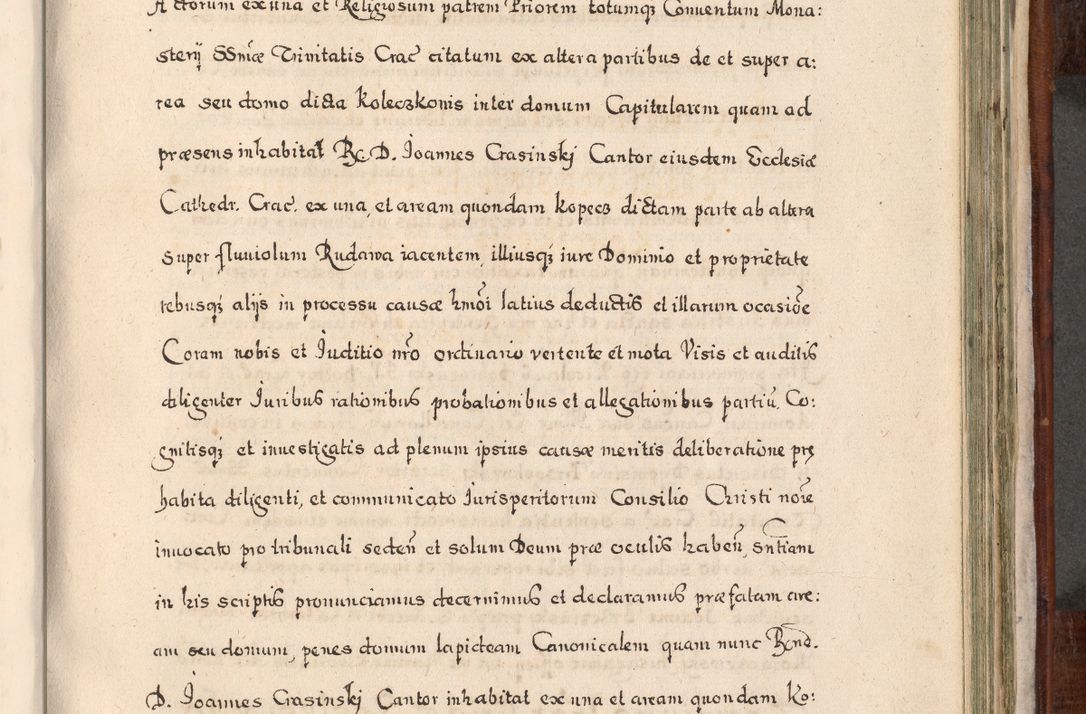 Actorum ex una et Religiosum patrem Priorem totumq3 Conuentum Mona:
sterij SSmæ Trinitatis Crac̄ citatum ex altera partibus de et super a:
rea seu domo dicta Koleczkonis inter domum Capitularem quam ad
præsens inhabitat R.D. Ioannes Crasinskj Cantor eiusdem Ecclesiæ
Cathedr. Crac. ex una, et aream quondam Kopecz dictam parte ab altera
super fluuiolum Rudawa iacentem, illiusq3 iure Dominio et proprietate
rebusq3 alijs in processu causæ hm̄oi latius deductis et illarum ocasiōe
Coram nobis et Iuditio nr̄o ordinario vertente et mota Visis et auditis
diligenter Iuribus rationibus probationibus et allegationibus partiū, Co:
gnitisq3 et inuestigatis ad plenum ipsius causæ meritis deliberatione prę
habita diligenti, et communicato Iurisperitorum Consilio Christi noīe
inuocato pro tribunali sedeñ et solum Deum præ oculis habeñ, sn̄tiam
in his scriptis pronunciamus decernimus et declaramus præfatam are:
am seu domum, penes domum lapideam Canonicalem quam nunc Rnd.
D. Ioannes Crasinskj Cantor inhabitat ex una et aream quondam Ko: